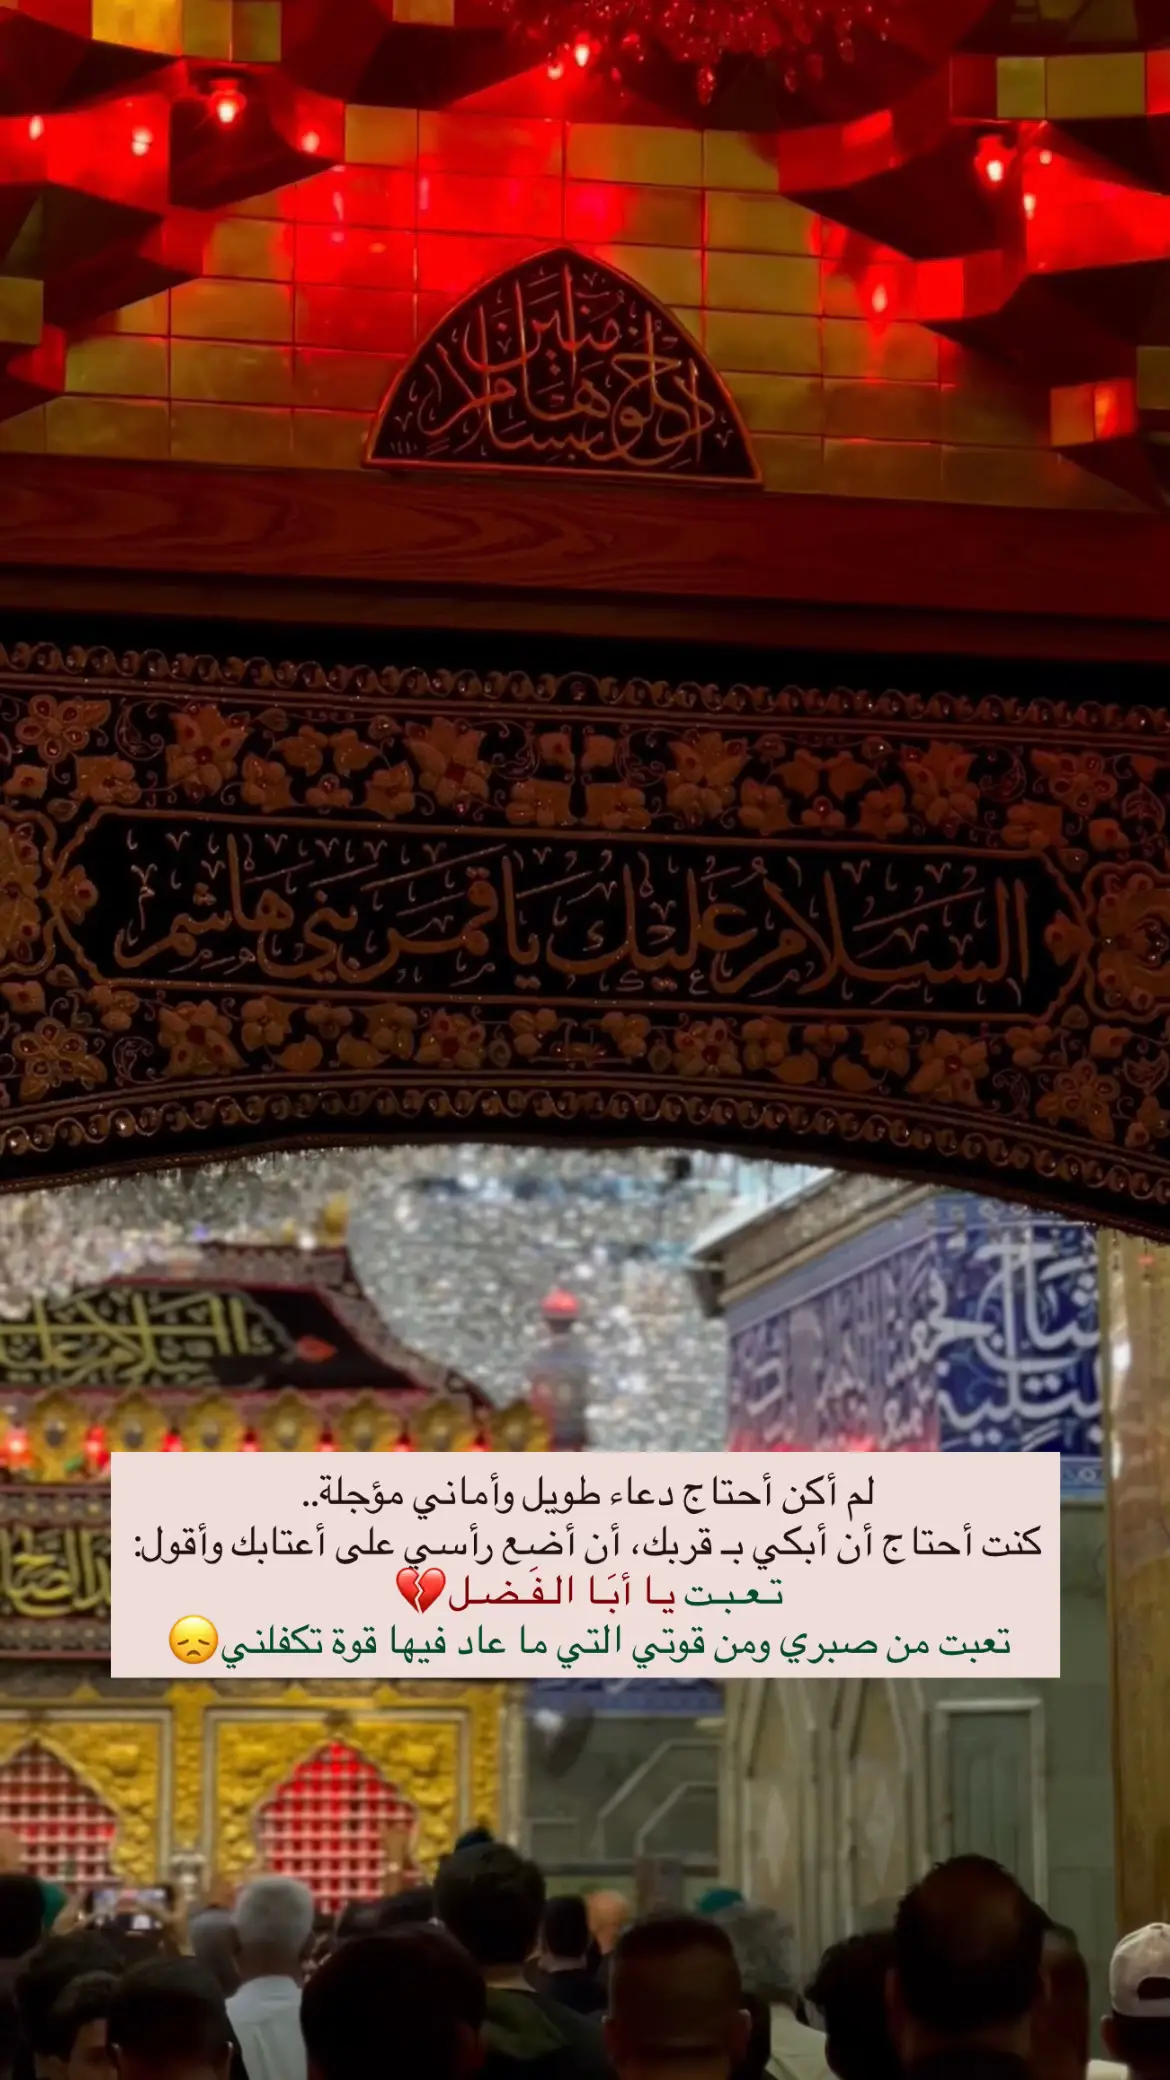 ادخلوها بسلام آمنين
السلام عليك يا قمر بني هاشم
السلام عليك
لم أكن أحتاج دعاء طويل وأماني مؤجلة..
كنت أحتاج أن أبكي بـ قربك، أن أضع رأسي على أعتابك وأقول:
تـعـبـت يـا أبَـا الـفَـضـل💔
تعبت من صبري ومن قوتي التي ما عاد فيها قوة تكفلني😞